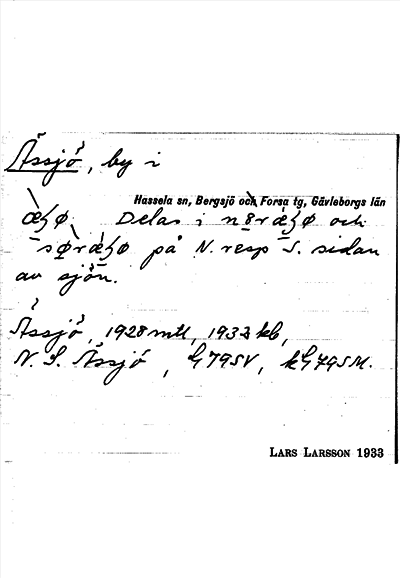 Ässjö, by i
Hassela sn, Bergsjö och Forsa tg, Gävleborgs län
Delas i och
på N. resp S. sidan
av sjön.
Ässjö, 1928 mtl, 1933 kb,
N. S. Ässjö, G79SV,
LARS LARSSON 1933